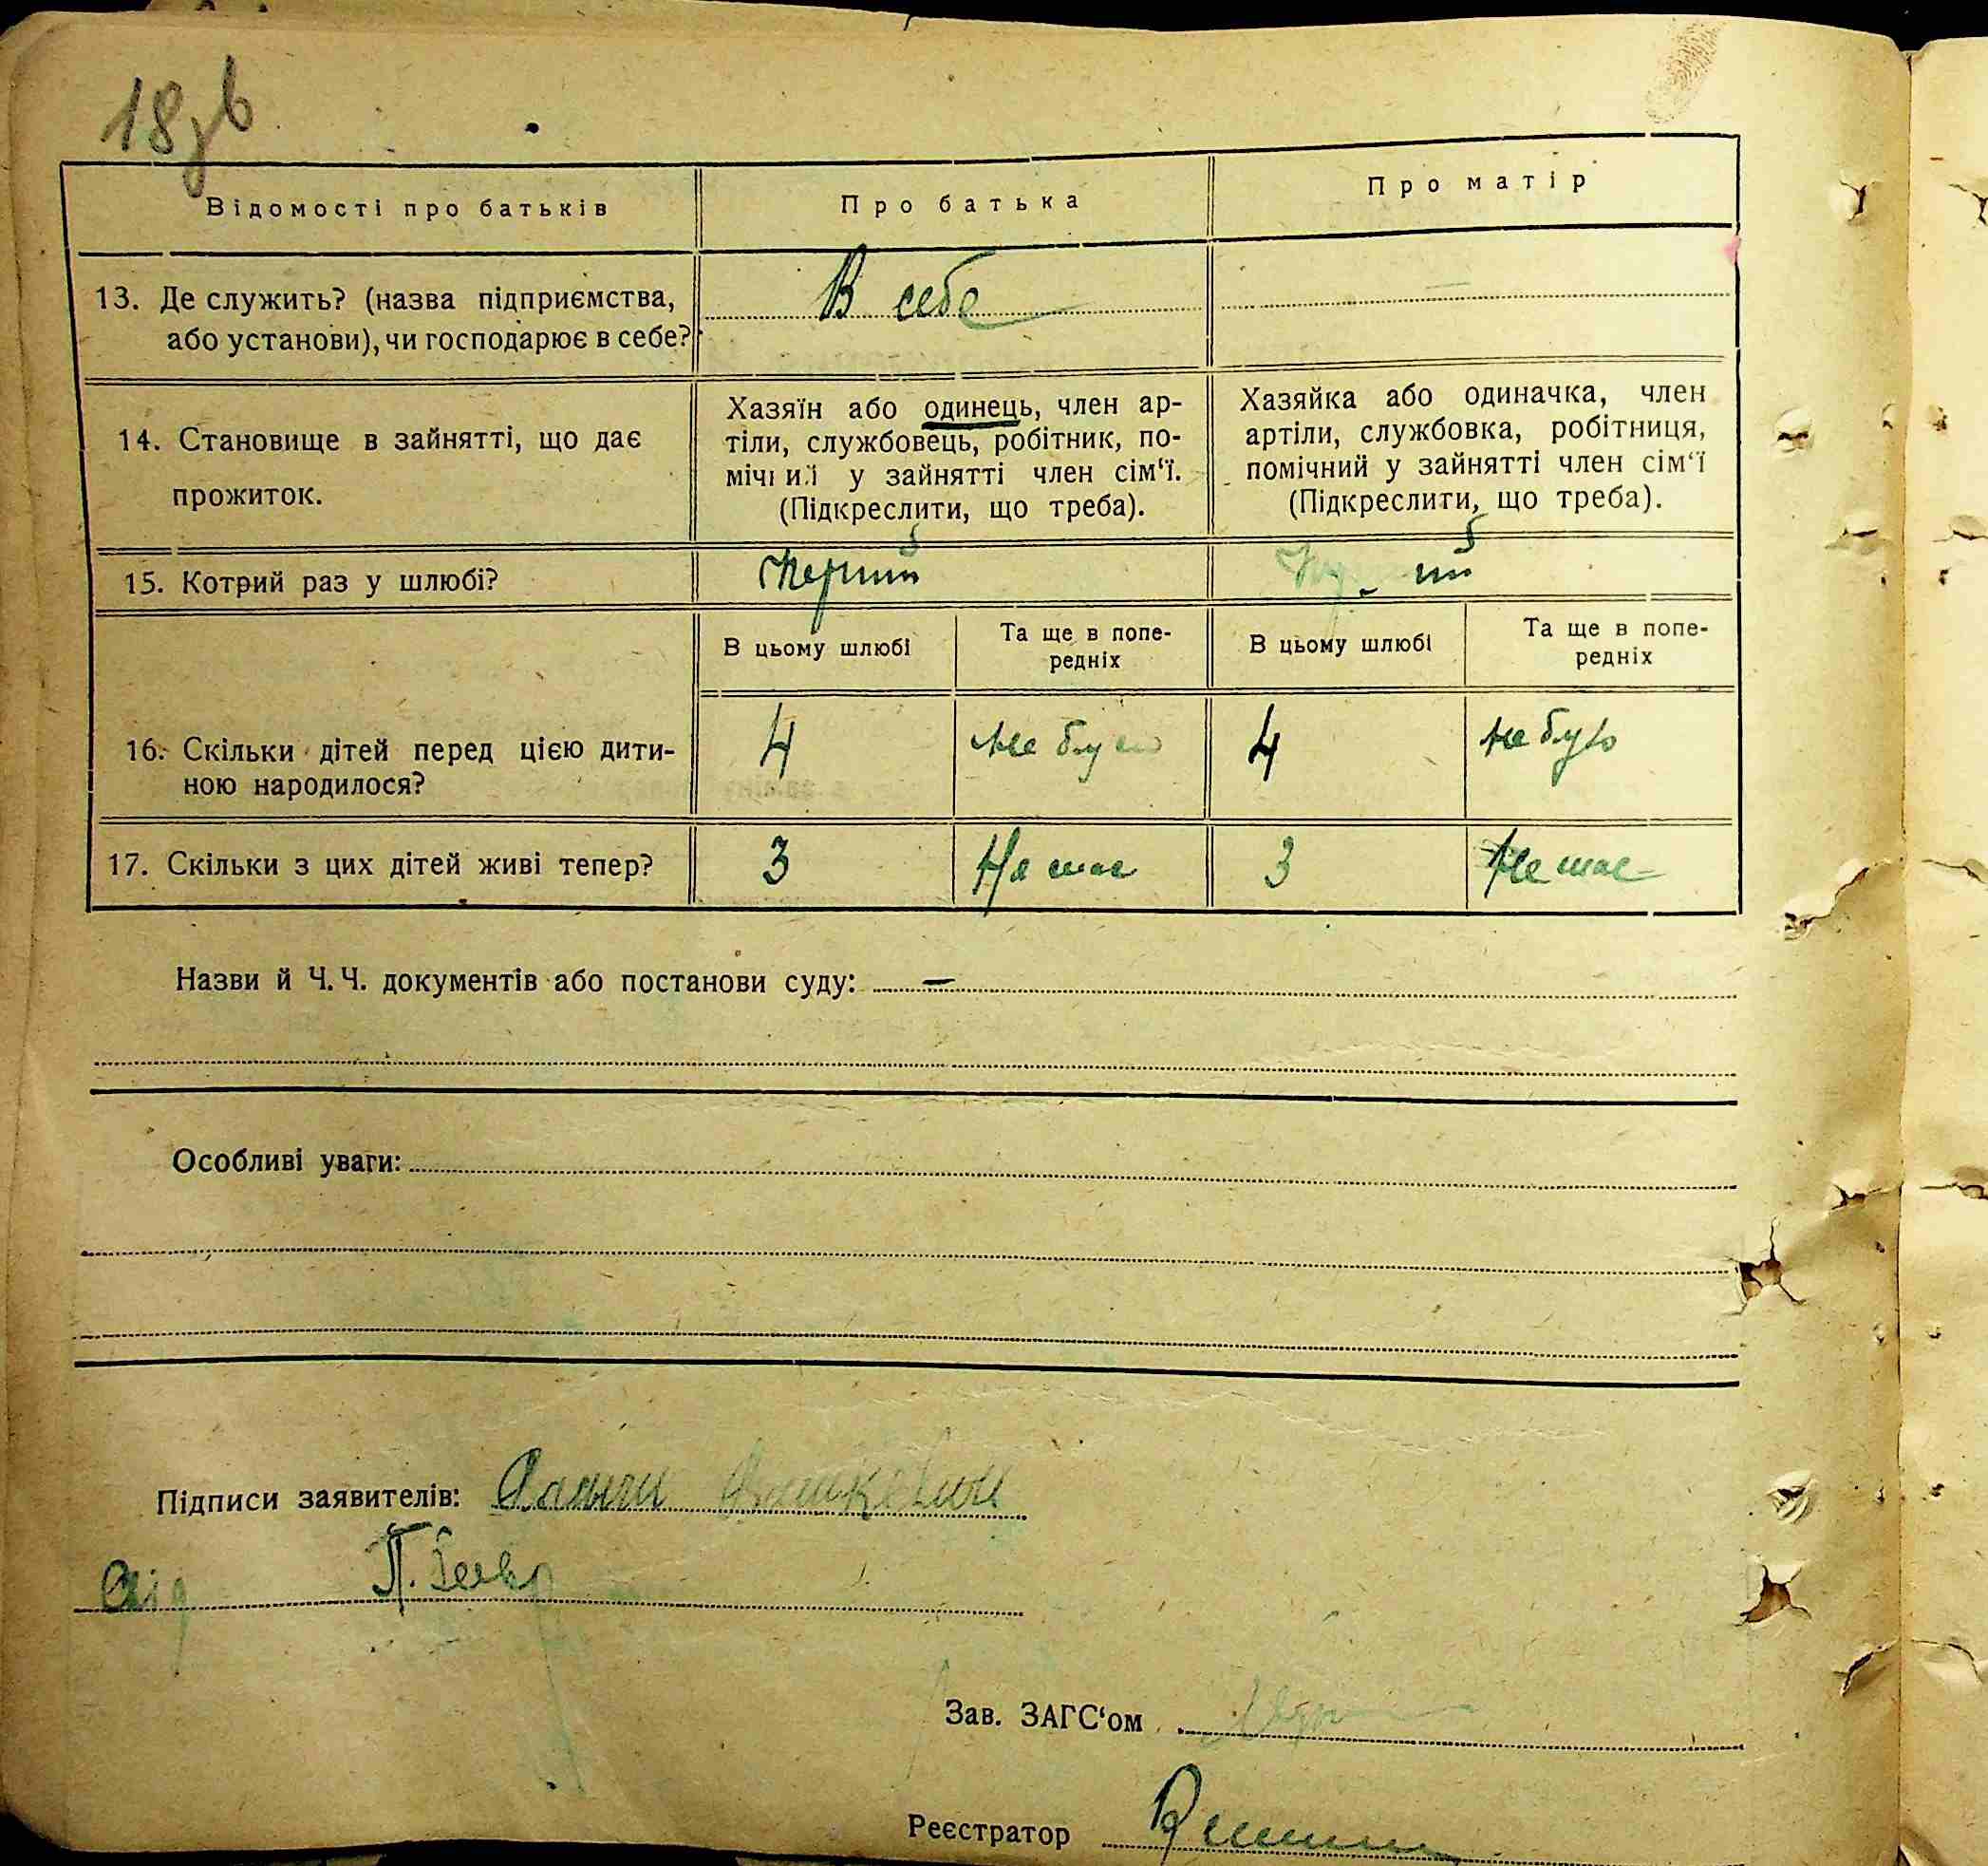 18зв
Відомості про батьків
Про батька
Про матір
13. Де служить? (назва підприємства,
або установи), чи господарює в себе?
В себе
—
14. Становище в зайнятті, що дає
прожиток.
Хазяїн або одинець, член ар-
тіли, службовець, робітник, по-
мічний у зайнятті член сім‘ї.
(Підкреслити, що треба).
Хазяйка або одиначка, член
артіли, службовка, робітниця,
помічний у зайнятті член сім‘ї
(Підкреслити, що треба).
15. Котрий раз у шлюбі?
Перший
В цьому шлюбі
Та ще в попе-
редніх
В цьому шлюбі
Та ще в попе-
редніх
16. Скільки дітей перед цією дити-
ною народилося?
4
не було
4
не було
17. Скільки з цих дітей живі тепер?
3
Немає
3
Немає
Назви й Ч. Ч. документів або постанови суду: —
Особливі уваги:
Підписи заявителів:
П.
Зав. ЗАГС‘ом
Реєстратор